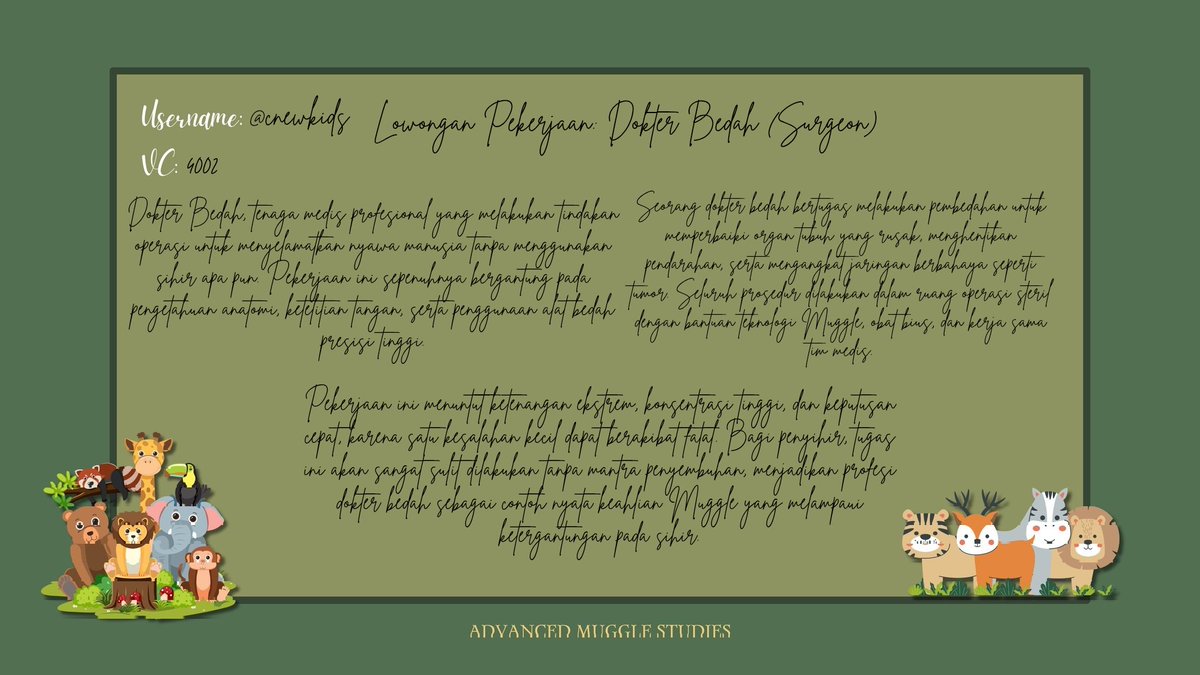 Username: @cnewkids
Lowongan Pekerjaan: Dokter Bedah (Surgeon)
VC: 4002
Dokter Bedah, tenaga medis profesional yang melakukan tindakan
operasi untuk menyelamatkan nyawa manusia tanpa menggunakan
sihir apa pun. Pekerjaan ini sepenuhnya bergantung pada
pengetahuan anatomi, ketelitian tangan, serta penggunaan alat bedah
presisi tinggi.
Seorang dokter bedah bertugas melakukan pembedahan untuk
memperbaiki organ tubuh yang rusak, menghentikan
pendarahan, serta mengangkat jaringan berbahaya seperti
tumor. Seluruh prosedur dilakukan dalam ruang operasi steril
dengan bantuan teknologi Muggle, obat bius, dan kerja sama
tim medis.
Pekerjaan ini menuntut ketenangan ekstrem, konsentrasi tinggi, dan keputusan
cepat, karena satu kesalahan kecil dapat berakibat fatal. Bagi penyihir, tugas
ini akan sangat sulit dilakukan tanpa mantra penyembuhan, menjadikan profesi
dokter bedah sebagai contoh nyata keahlian Muggle yang melampaui
ketergantungan pada sihir.
ADVANCED MUGGLE STUDIES